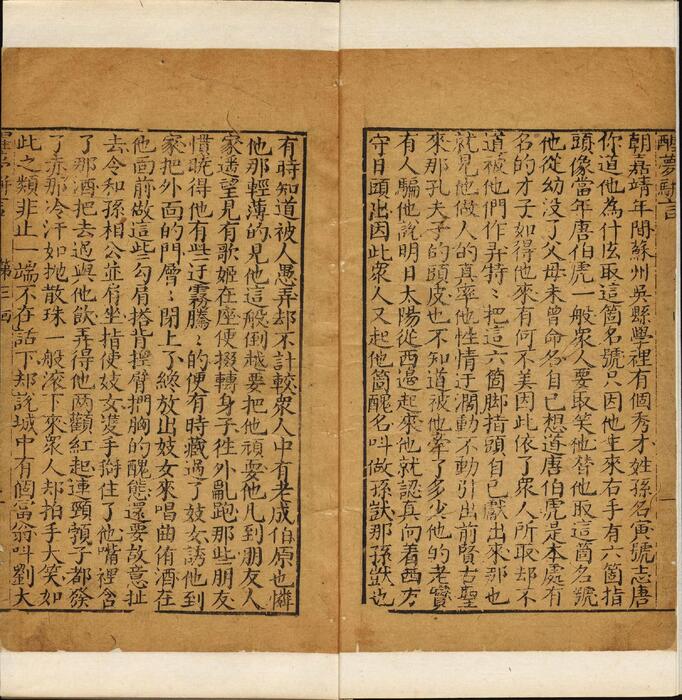 醒夢駢言
朝嘉靖年間蘇州吳縣學裡有個秀才姓孫名寅號志唐
你道他為什広取這箇名號只因他生來右手有六箇指
頭像當年唐伯虎一般衆人要取笑他替他取這箇名號
他從幼沒了父母未曾命名自已想道唐伯虎是本處有
名的才子如得他來有何不美因此依了衆人所取却不
道被他們作弄特〻把這六箇脚指頭自已獻出來那也
就見他做人的真率他性情迂濶動不動引出前賢古聖
來那孔夫子的頭皮也不知道被他牽了多少他的老實
有人騙他說明日太陽從西邉起來他就認真向着西方
守日頭出因此衆人又起他箇醜名叫做孫獃那孫獃也
有時知道被人愚弄却不計較衆人中有老成伯原也憐
他那輕薄的見他這般倒越要把他頑耍他凡到朋友人
家遠望見有歌姬在座便掇轉身子徃外亂跑那些朋友
慣曉得他有些迂霧騰〻的便有時藏過了妓女誘他到
家把外面的門層〻閉上了纔放出妓女來唱曲侑酒在
他面前做這些勾肩搭背摸臂捫胸的醜態還要故意扯
去令和孫相公並肩坐指使妓女雙手掰住了他嘴裡含
了那酒把去過與他飲弄得他兩顴紅起連頸顙子都發
了赤那冷汗如抛散珠一般滚下來衆人却拍手大笑如
此之類非止一端不在話下却說城中有個富翁叫劉大
醒夢駢言 第三回